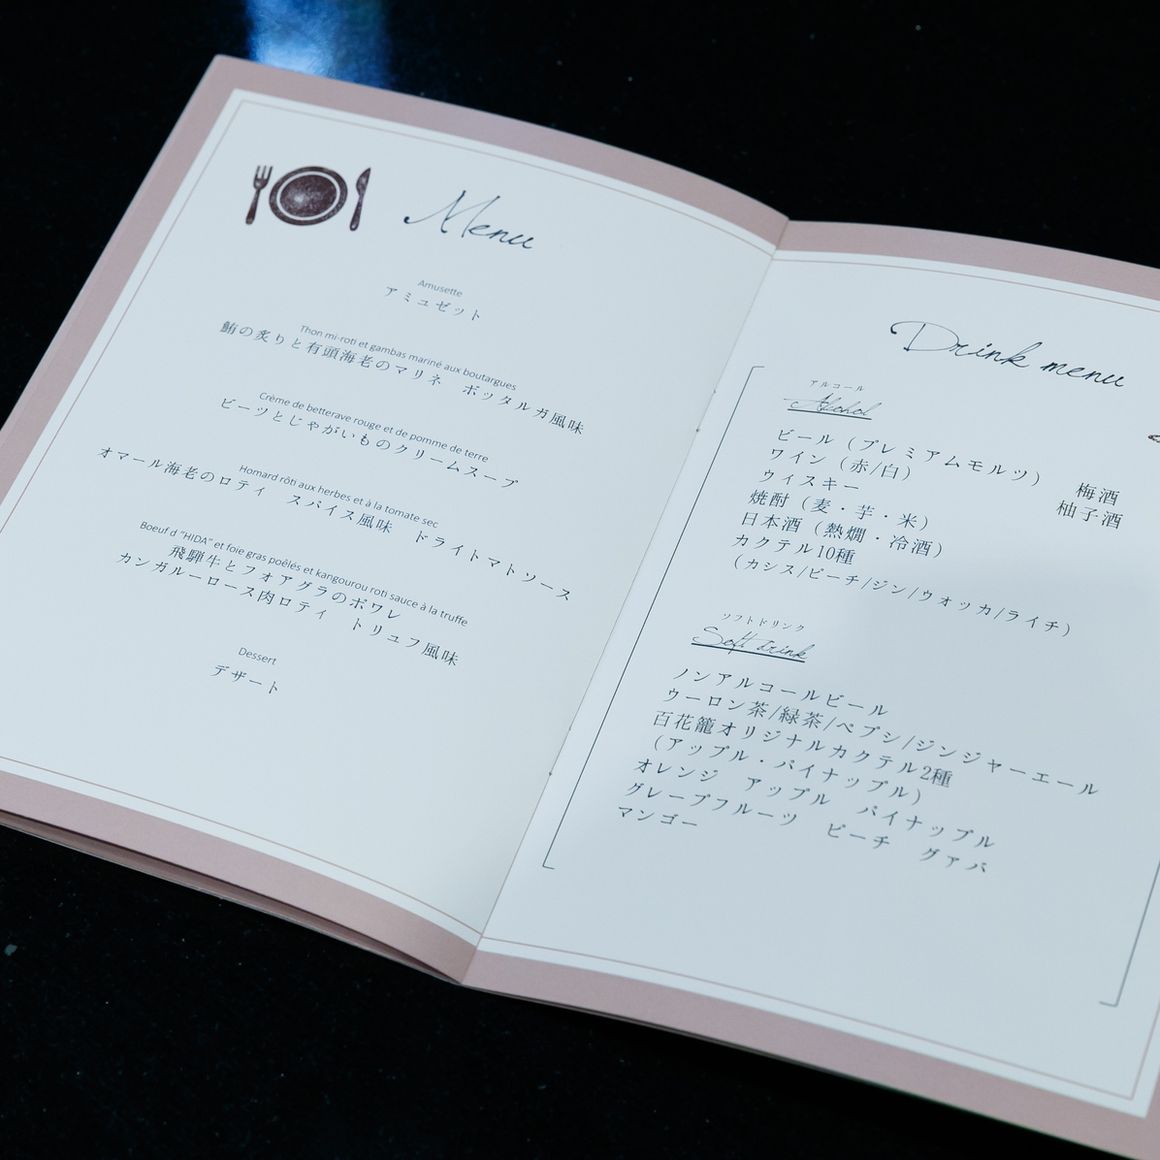 Menu
Amusette
アミュゼット
Thon mi-roti et gambas mariné aux boutargues
鮪の炙りと有頭海老のマリネ　ボッタルガ風味
Crème de betterave rouge et de pomme de terre
ビーツとじゃがいものクリームスープ
Homard rôti aux herbes et à la tomate sec
オマール海老のロティ　スパイス風味　ドライトマトソース
Boeuf d "HIDA" et foie gras poêlés et kangourou roti sauce à la truffe
飛騨牛とフォアグラのポワレ
カンガルーロース肉ロティ　トリュフ風味
Dessert
デザート
Drink menu
アルコール
Alcohol
ビール（プレミアムモルツ）　梅酒
ワイン（赤/白）　柚子酒
ウィスキー
焼酎（麦・芋・米）
日本酒（熱燗・冷酒）
カクテル10種
（カシス/ピーチ/ジン/ウォッカ/ライチ）
ソフトドリンク
Soft drink
ノンアルコールビール
ウーロン茶/緑茶/ペプシ/ジンジャーエール
百花籠オリジナルカクテル2種
（アップル・パイナップル）
オレンジ　アップル　パイナップル
グレープフルーツ　ピーチ　グァバ
マンゴー